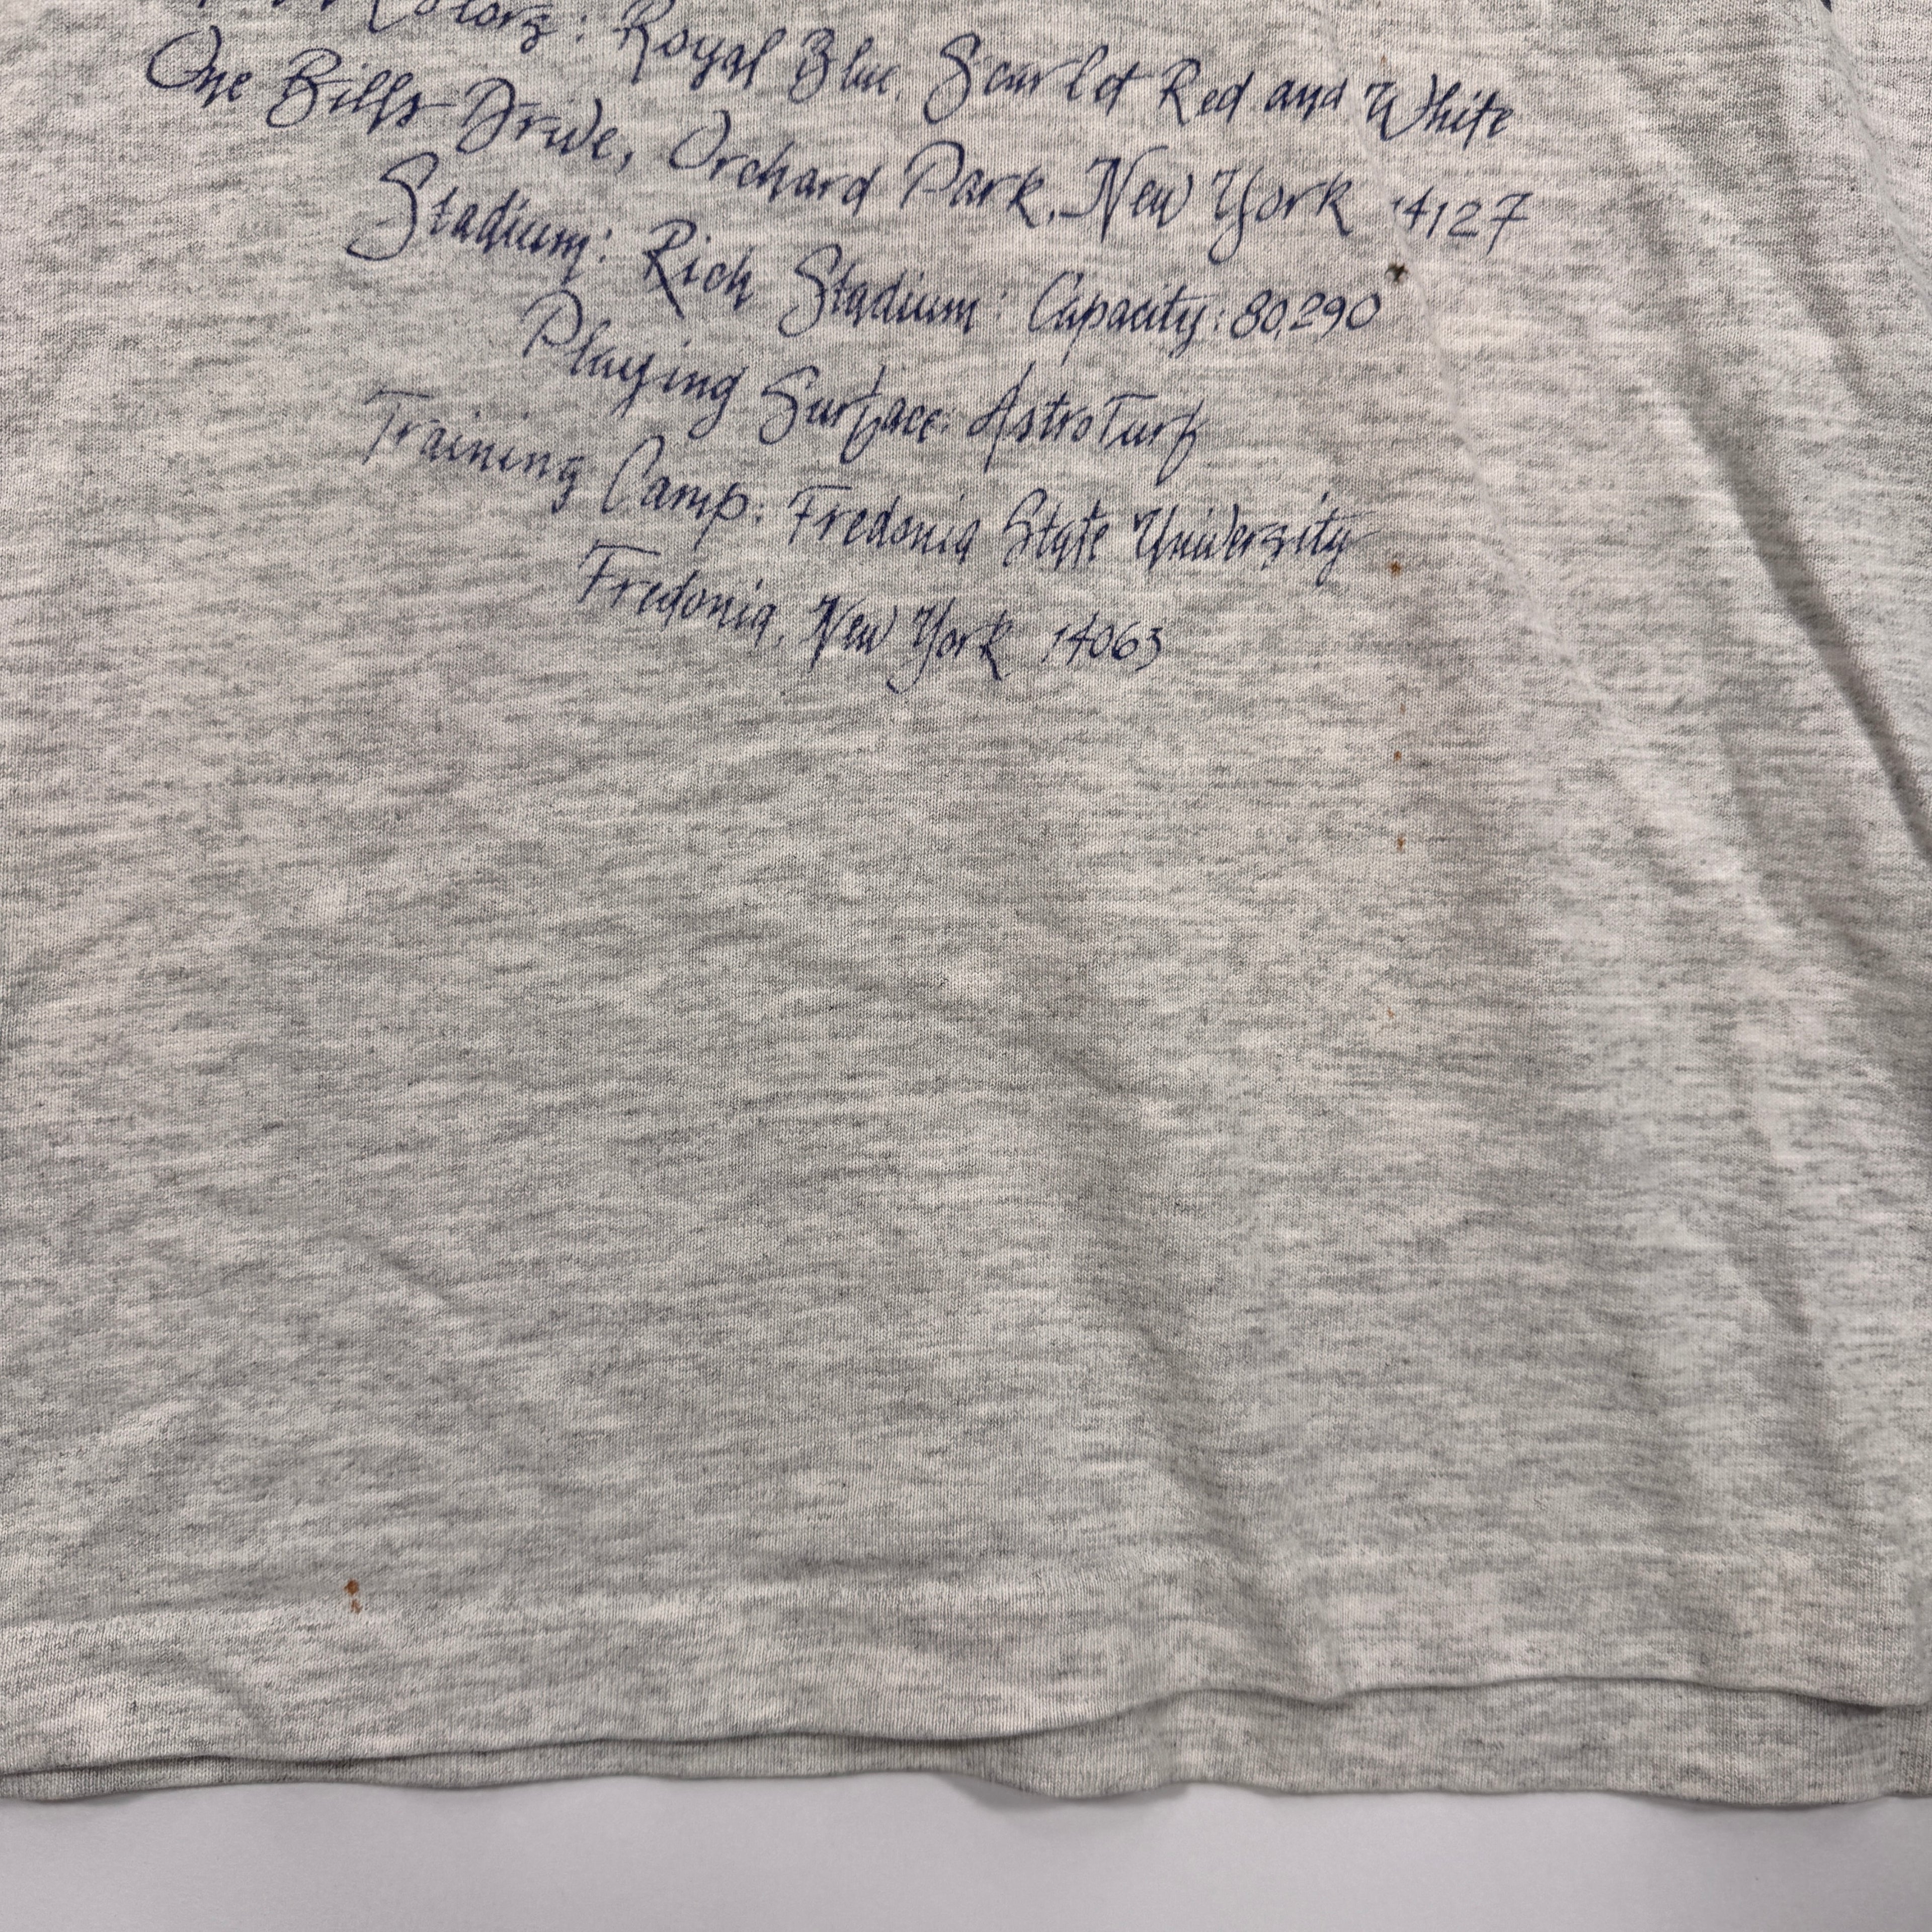 Colors: Royal Blue, Scarlet Red and White
One Bills Drive, Orchard Park, New York 14127
Stadium: Rich Stadium: Capacity: 80,290
Playing Surface: AstroTurf
Training Camp: Fredonia State University
Fredonia, New York 14063